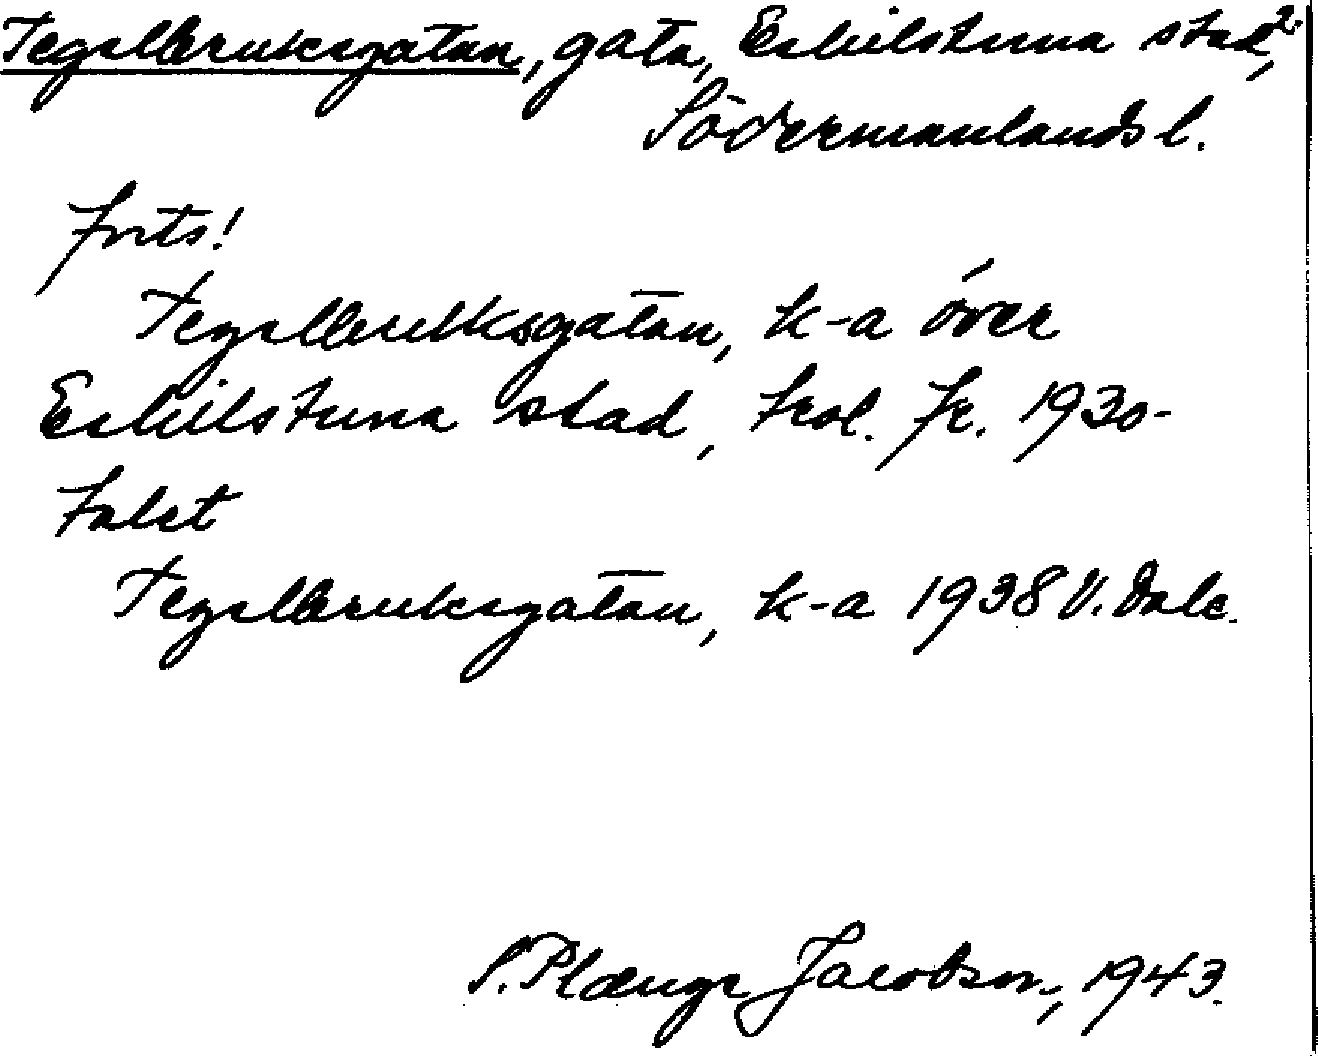 Tegelbruksgatan, gata, Eskilstuna stad, 2.
Södermanlands l.
forts!
Tegelbruksgatan, k-a över
Eskilstuna stad, trol. fr. 1930-
talet
Tegelbruksgatan, k-a 1938 V. Dale.
S. Plænge Jacobson, 1943.